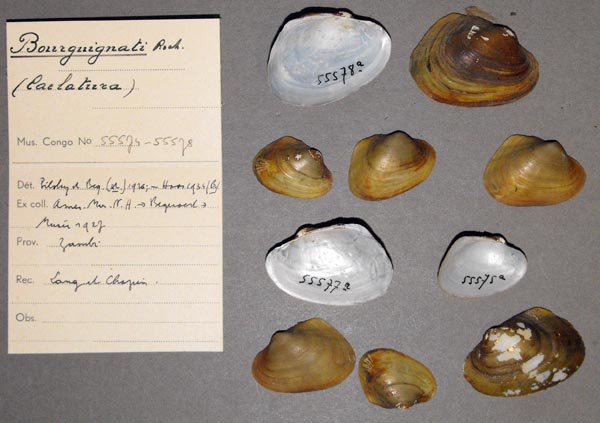 Bourguignati Anh.
(Caelatura)
Mus. Congo No 55574-55578
Dét. Pilsbry & Beq. 1927
Ex coll. Amer. Mus. N. H. → Bequaert →
Musée 1927
Prov. Zambi
Rec. Lang et Chapin.
Obs.
55578a
55577a
55575a